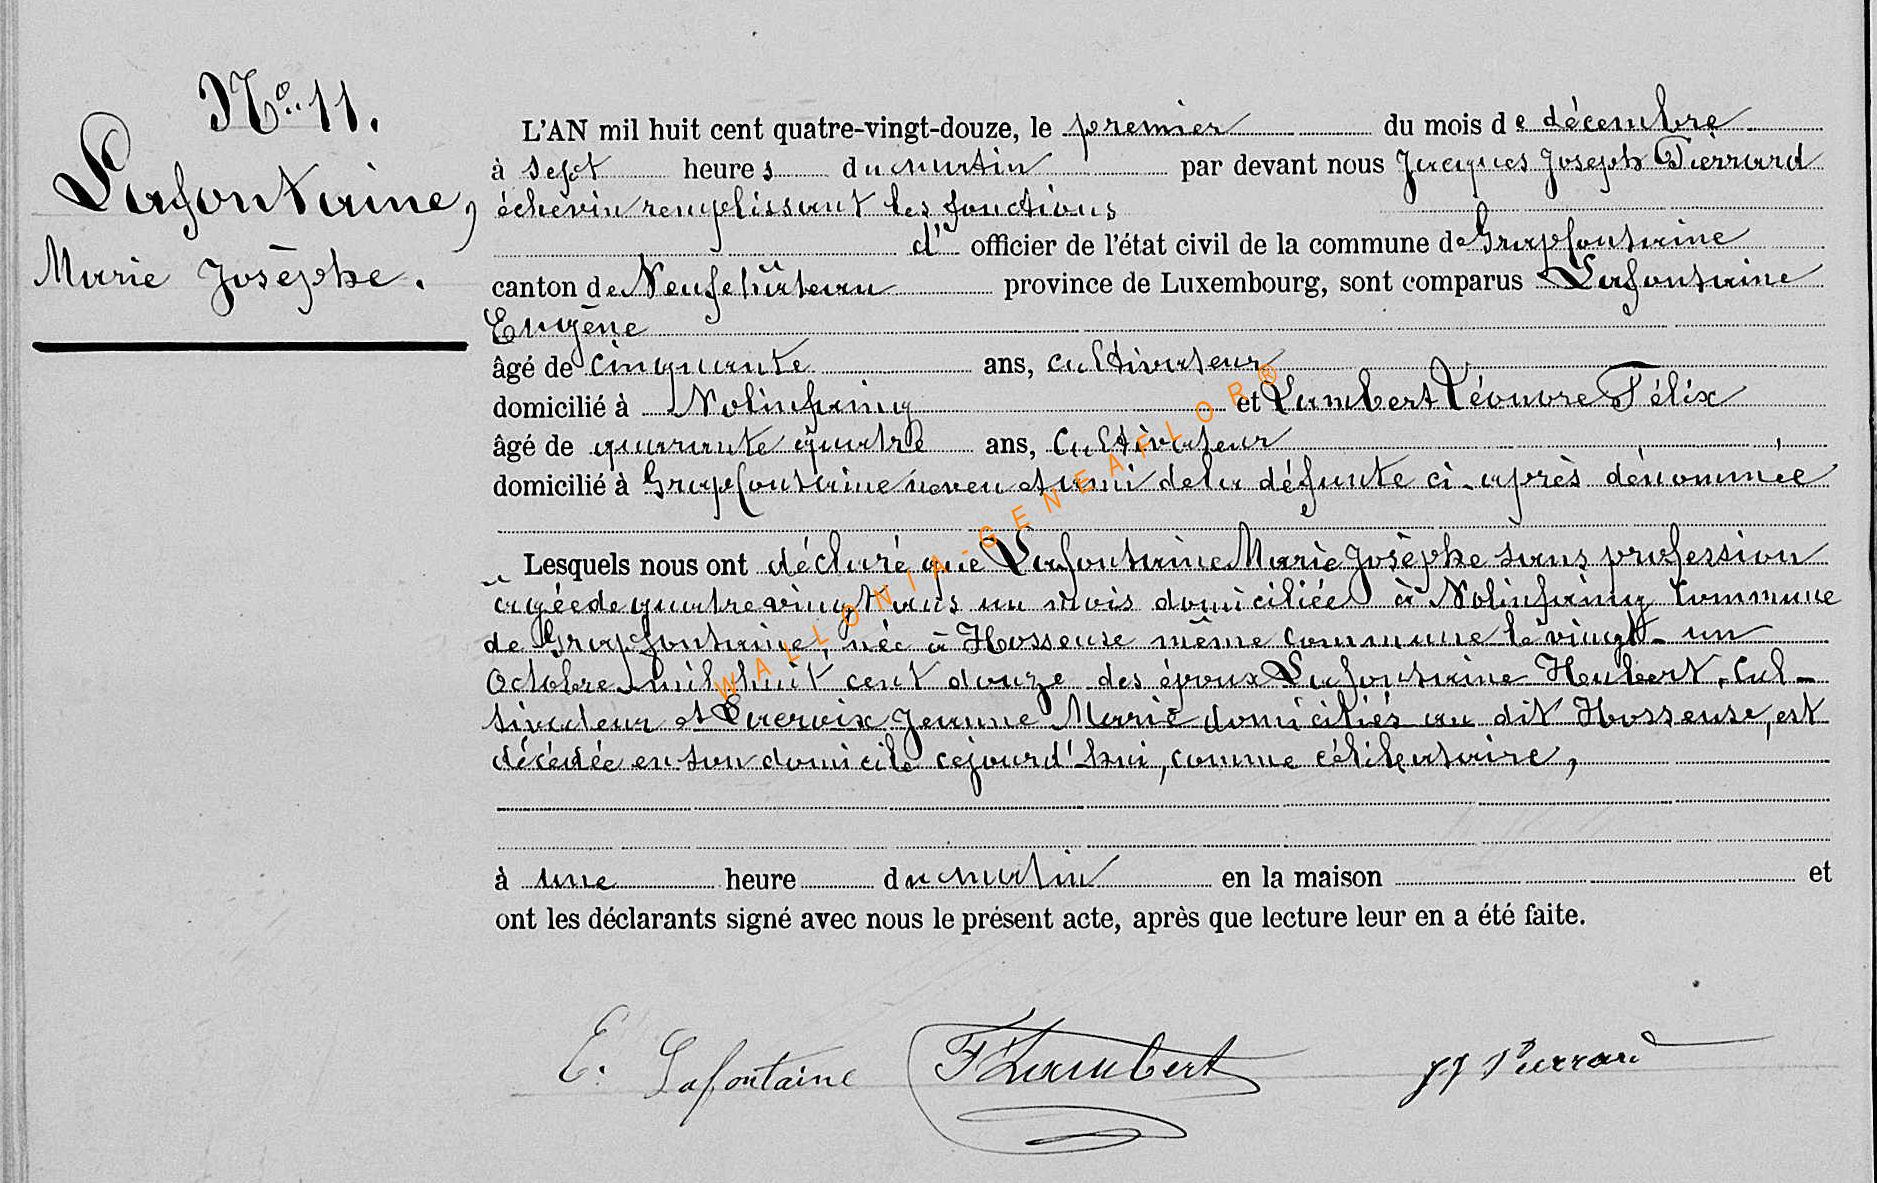 Nº 11.
Lafontaine,
Marie Josèphe.
L'AN mil huit cent quatre-vingt-douze, le premier du mois de décembre
à sept heures du matin par devant nous Jacques Joseph Pierrard
échevin remplissant les fonctions
d' officier de l'état civil de la commune de Grapfontaine
canton de Neufchâteau province de Luxembourg, sont comparus Lafontaine
Eugène
âgé de cinquante ans, cultivateur
domicilié à Nolinfaing et Lambert Félix
âgé de quarante quatre ans, cultivateur
domicilié à Grapfontaine neveu et ami de la défunte ci-après dénommée
Lesquels nous ont déclaré que Lafontaine Marie Josèphe sans profession
agée de quatre vingt ans un mois domiciliée à Nolinfaing Commune
de Grapfontaine, née à Hosseuse même commune le vingt-un
Octobre mil huit cent douze des époux Lafontaine Heubert, Cul-
tivateur et Lacroix Jeanne Marie domiciliés au dit Hosseuse, est
décédée en son domicile cejourd'hui, comme célibataire,
à une heure du matin en la maison et
ont les déclarants signé avec nous le présent acte, après que lecture leur en a été faite.
E. Lafontaine F Lambert JJ Pierrard
WALLONIA-GENEAFLOR®